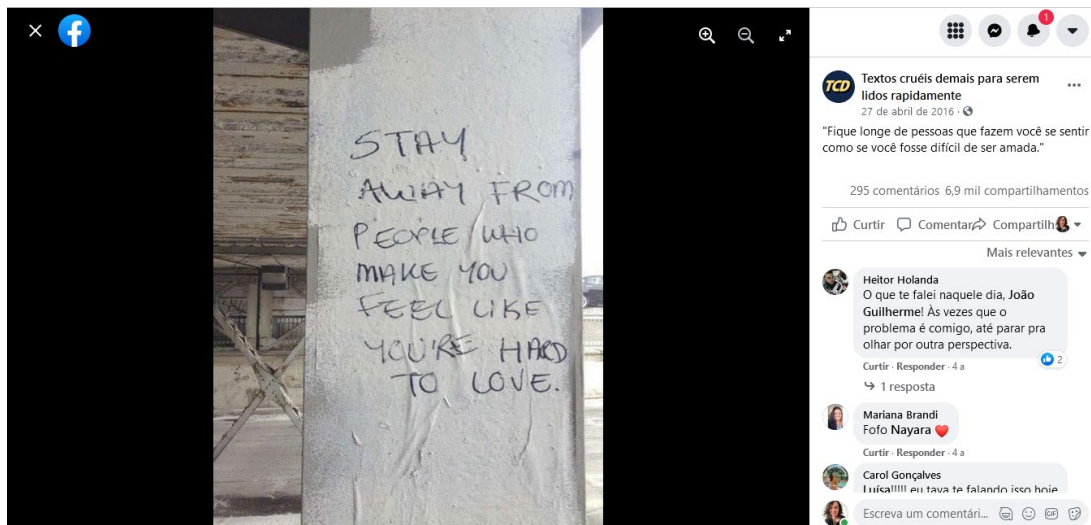 STAY
AWAY FROM
PEOPLE WHO
MAKE YOU
FEEL LIKE
YOU'RE HARD
TO LOVE.
1
TCD
Textos cruéis demais para serem
lidos rapidamente
27 de abril de 2016 ·
"Fique longe de pessoas que fazem você se sentir
como se você fosse difícil de ser amada."
295 comentários 6,9 mil compartilhamentos
Curtir Comentar Compartilh
Mais relevantes
Heitor Holanda
O que te falei naquele dia, João
Guilherme! Às vezes que o
problema é comigo, até parar pra
olhar por outra perspectiva.
2
Curtir · Responder · 4 a
1 resposta
Mariana Brandi
Fofo Nayara ❤️
Curtir · Responder · 4 a
Carol Gonçalves
Luísa!!!!! eu tava te falando isso hoje
Escreva um comentári... GIF